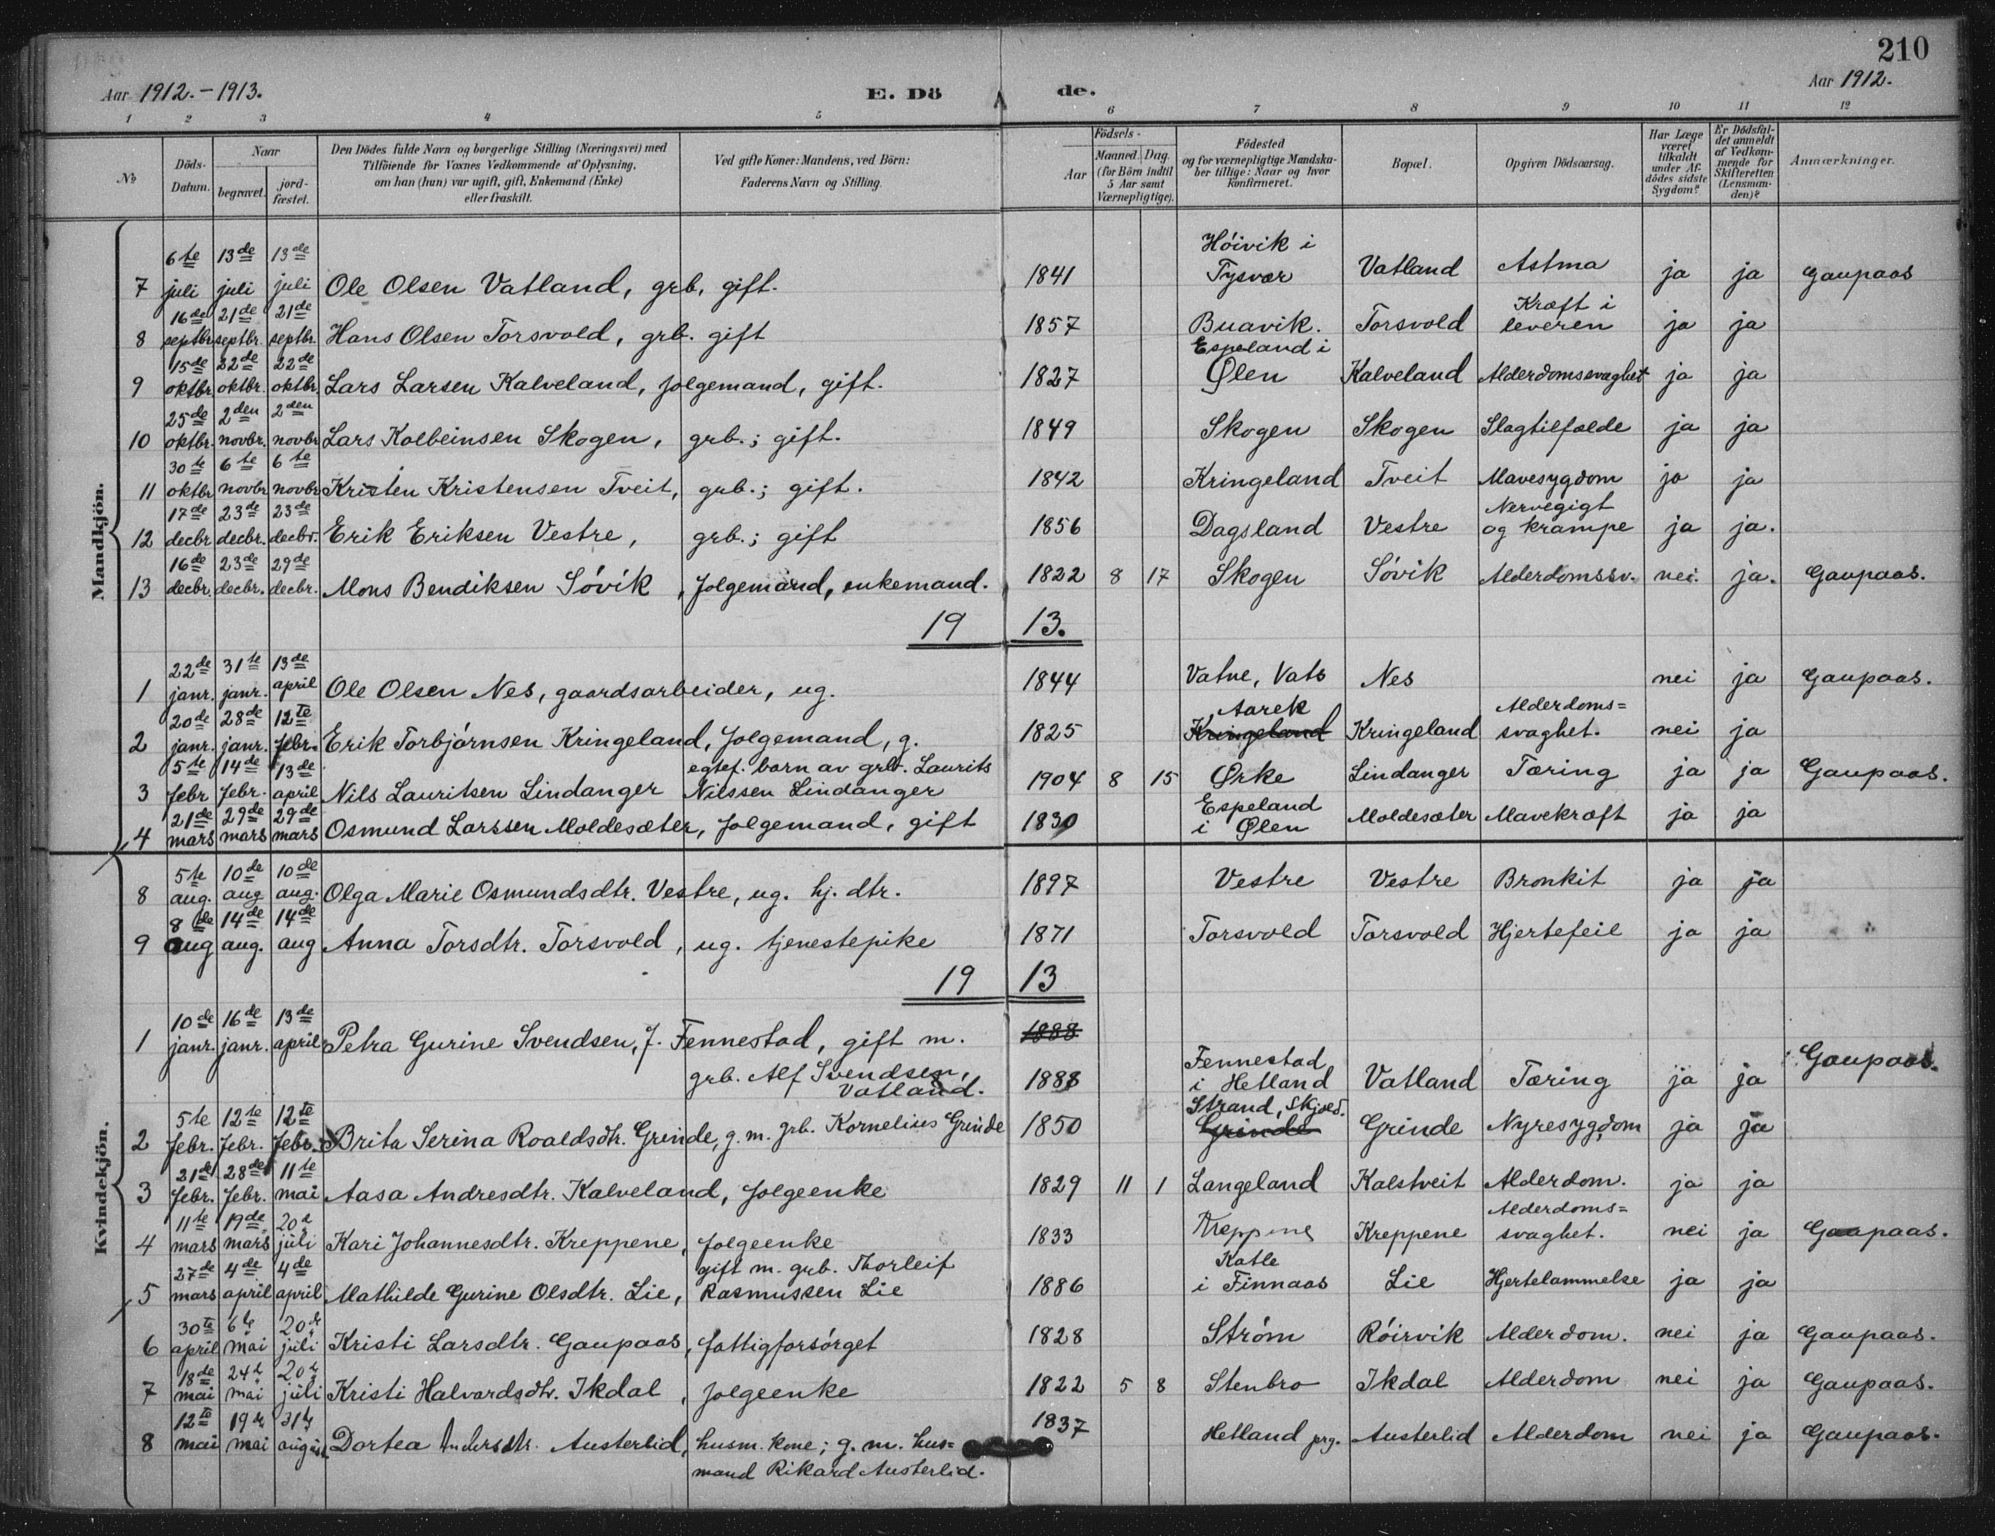 210
Aar 1912.-1913. E. Dö de. Aar 1912.
1 2 3 4 5 6 7 8 9 10 11 12
No Döds-Datum. Naar begravet. jord-fæstet. Den Dödes fulde Navn og borgerlige Stilling (Næringsvei) med Tilföiende for Voxnes Vedkommende af Oplysning, om han (hun) var ugift, gift, Enkemand (Enke) eller fraskilt. Ved gifte Koner: Mandens, ved Börn: Faderens Navn og Stilling. Födsels- Aar Maaned. Dag. (for Börn indtil 5 Aar samt Værnepligtige). Födested og for værnepligtige Mandskaber tillige: Naar og hvor Konfirmeret. Bopæl. Opgiven Dödsaarsag. Har Læge været tilkaldt under Afdödes sidste Sygdom? Er Dödsfaldet anmeldt af Vedkommende for Skifteretten (Lensmanden)? Anmærkninger.
Mandkjön.
7 6te juli 13de juli 13de juli Ole Olsen Vatland, grb, gift. 1841 Höivik i Tysvær Vatland Astma ja ja Gaupaas
8 16de septbr. 21de septbr. 21de septbr. Hans Olsen Torsvold, grb. gift 1857 Buavik. Torsvold Kræft i leveren ja ja
9 15de oktbr. 22de oktbr. 22de oktbr. Lars Larsen Kalveland, folgemand, gift. 1827 Espeland i Ølen Kalveland Alderdomssvaghet ja ja
10 25de oktbr. 2den novbr. 2den novbr. Lars Kolbeinsen Skogen, grb.; gift. 1849 Skogen Skogen Slagtilfælde ja ja
11 30te oktbr 6te novbr 6te novbr Kristen Kristensen Tveit, grb.; gift. 1842 Kringeland Tveit Mavesygdom ja ja
12 17de decbr 23de decbr. 23de decbr. Erik Eriksen Vestre, grb.; gift 1856 Dagsland Vestre Nervegigt og krampe ja ja.
13 16de decbr. 23de decbr. 29de decbr. Mons Bendiksen Sóvik, folgemand, enkemand. 1822 8 17 Skogen Sóvik Alderdomssv. nei. ja. Gaupaas.
19 13.
1 22de janr. 31te janr. 13de april Ole Olsen Nes, gaardsarbeider, ug. 1844 Vatne, Vats Nes nei ja Gaupaas.
2 20de janr. 28de janr. 12te febr. Erik Torbjörnsen Kringeland, folgemand, g. 1825 Aarek Kringeland Kringeland Alderdoms=svaghet. nei ja
3 5te febr 14de febr. 13de april Nils Lauritsen Lindanger egtef. barn av grb. Laurits Nilssen Lindanger 1904 8 15 Ørke Lindanger Tæring ja ja Gaupaas.
4 21de mars 29de mars 29de mars Osmund Larssen Moldesæter, folgemand, gift 1830 Espeland i Ølen Moldesæter Mavekræft ja ja
Kvindekjön.
8 5te aug. 10de aug 10de aug. Olga Marie Osmundsdtr. Vestre, ug. hj. dtr. 1897 Vestre Vestre Bronkit ja ja
9 8de aug 14de aug. 14de aug Anna Torsdtr. Torsvold, ug. tjenestepike 1871 Torsvold Torsvold Hjertefeil ja ja
19 13
1 10de janr. 16de janr. 13de april Petra Gurine Svendsen, f. Fennestad, gift m. 1888
grb. Alf Svendsen, Vatland. 1888 Fennestad i Hetland Vatland Tæring ja ja Gaupaas.
2 5te febr. 12te febr. 12te febr. Brita Serina Roaldsdtr. Grinde, g. m. grb. Kornelius Grinde 1850 Strand, Skjold. Grinde Grinde Nyresygdom ja ja
3 21de febr. 28de febr. 11te mai Aasa Andresdtr. Kalveland, folgeenke 1829 11 1 Langeland Kalstveit Alderdom. ja ja
4 11te mars 19de mars 20d juli Kari Johannesdtr. Kreppene, folgeenke 1833 Kreppene Kreppene Alderdoms=svaghet. nei ja Gaupaas.
5 27de mars 4de april 4de april Mathilde Gurine Olsdtr. Lie, gift m. grb. Thorleif Rasmussen Lie 1886 Katle i Finnaas Lie Hjertelammelse ja ja
6 30te april 6te mai 20d juli Kristi Larsdtr. Gaupaas, fattigforsörget 1828 Ström Röirvik Alderdom. nei ja Gaupaas.
7 18de mai 24d mai 20d juli Kristi Halvardsdtr. Ikdal, folgeenke 1822 5 8 Stenbro Ikdal Alderdom nei ja Gaupaas.
8 12te mai 19de mai 31te august Dortea Andersdtr. Austerlid, husm. kone; g. m. hus=mand Rikard Austerlid. 1837 Hetland prg. Austerlid Alderdom nei ja Gaupaas.